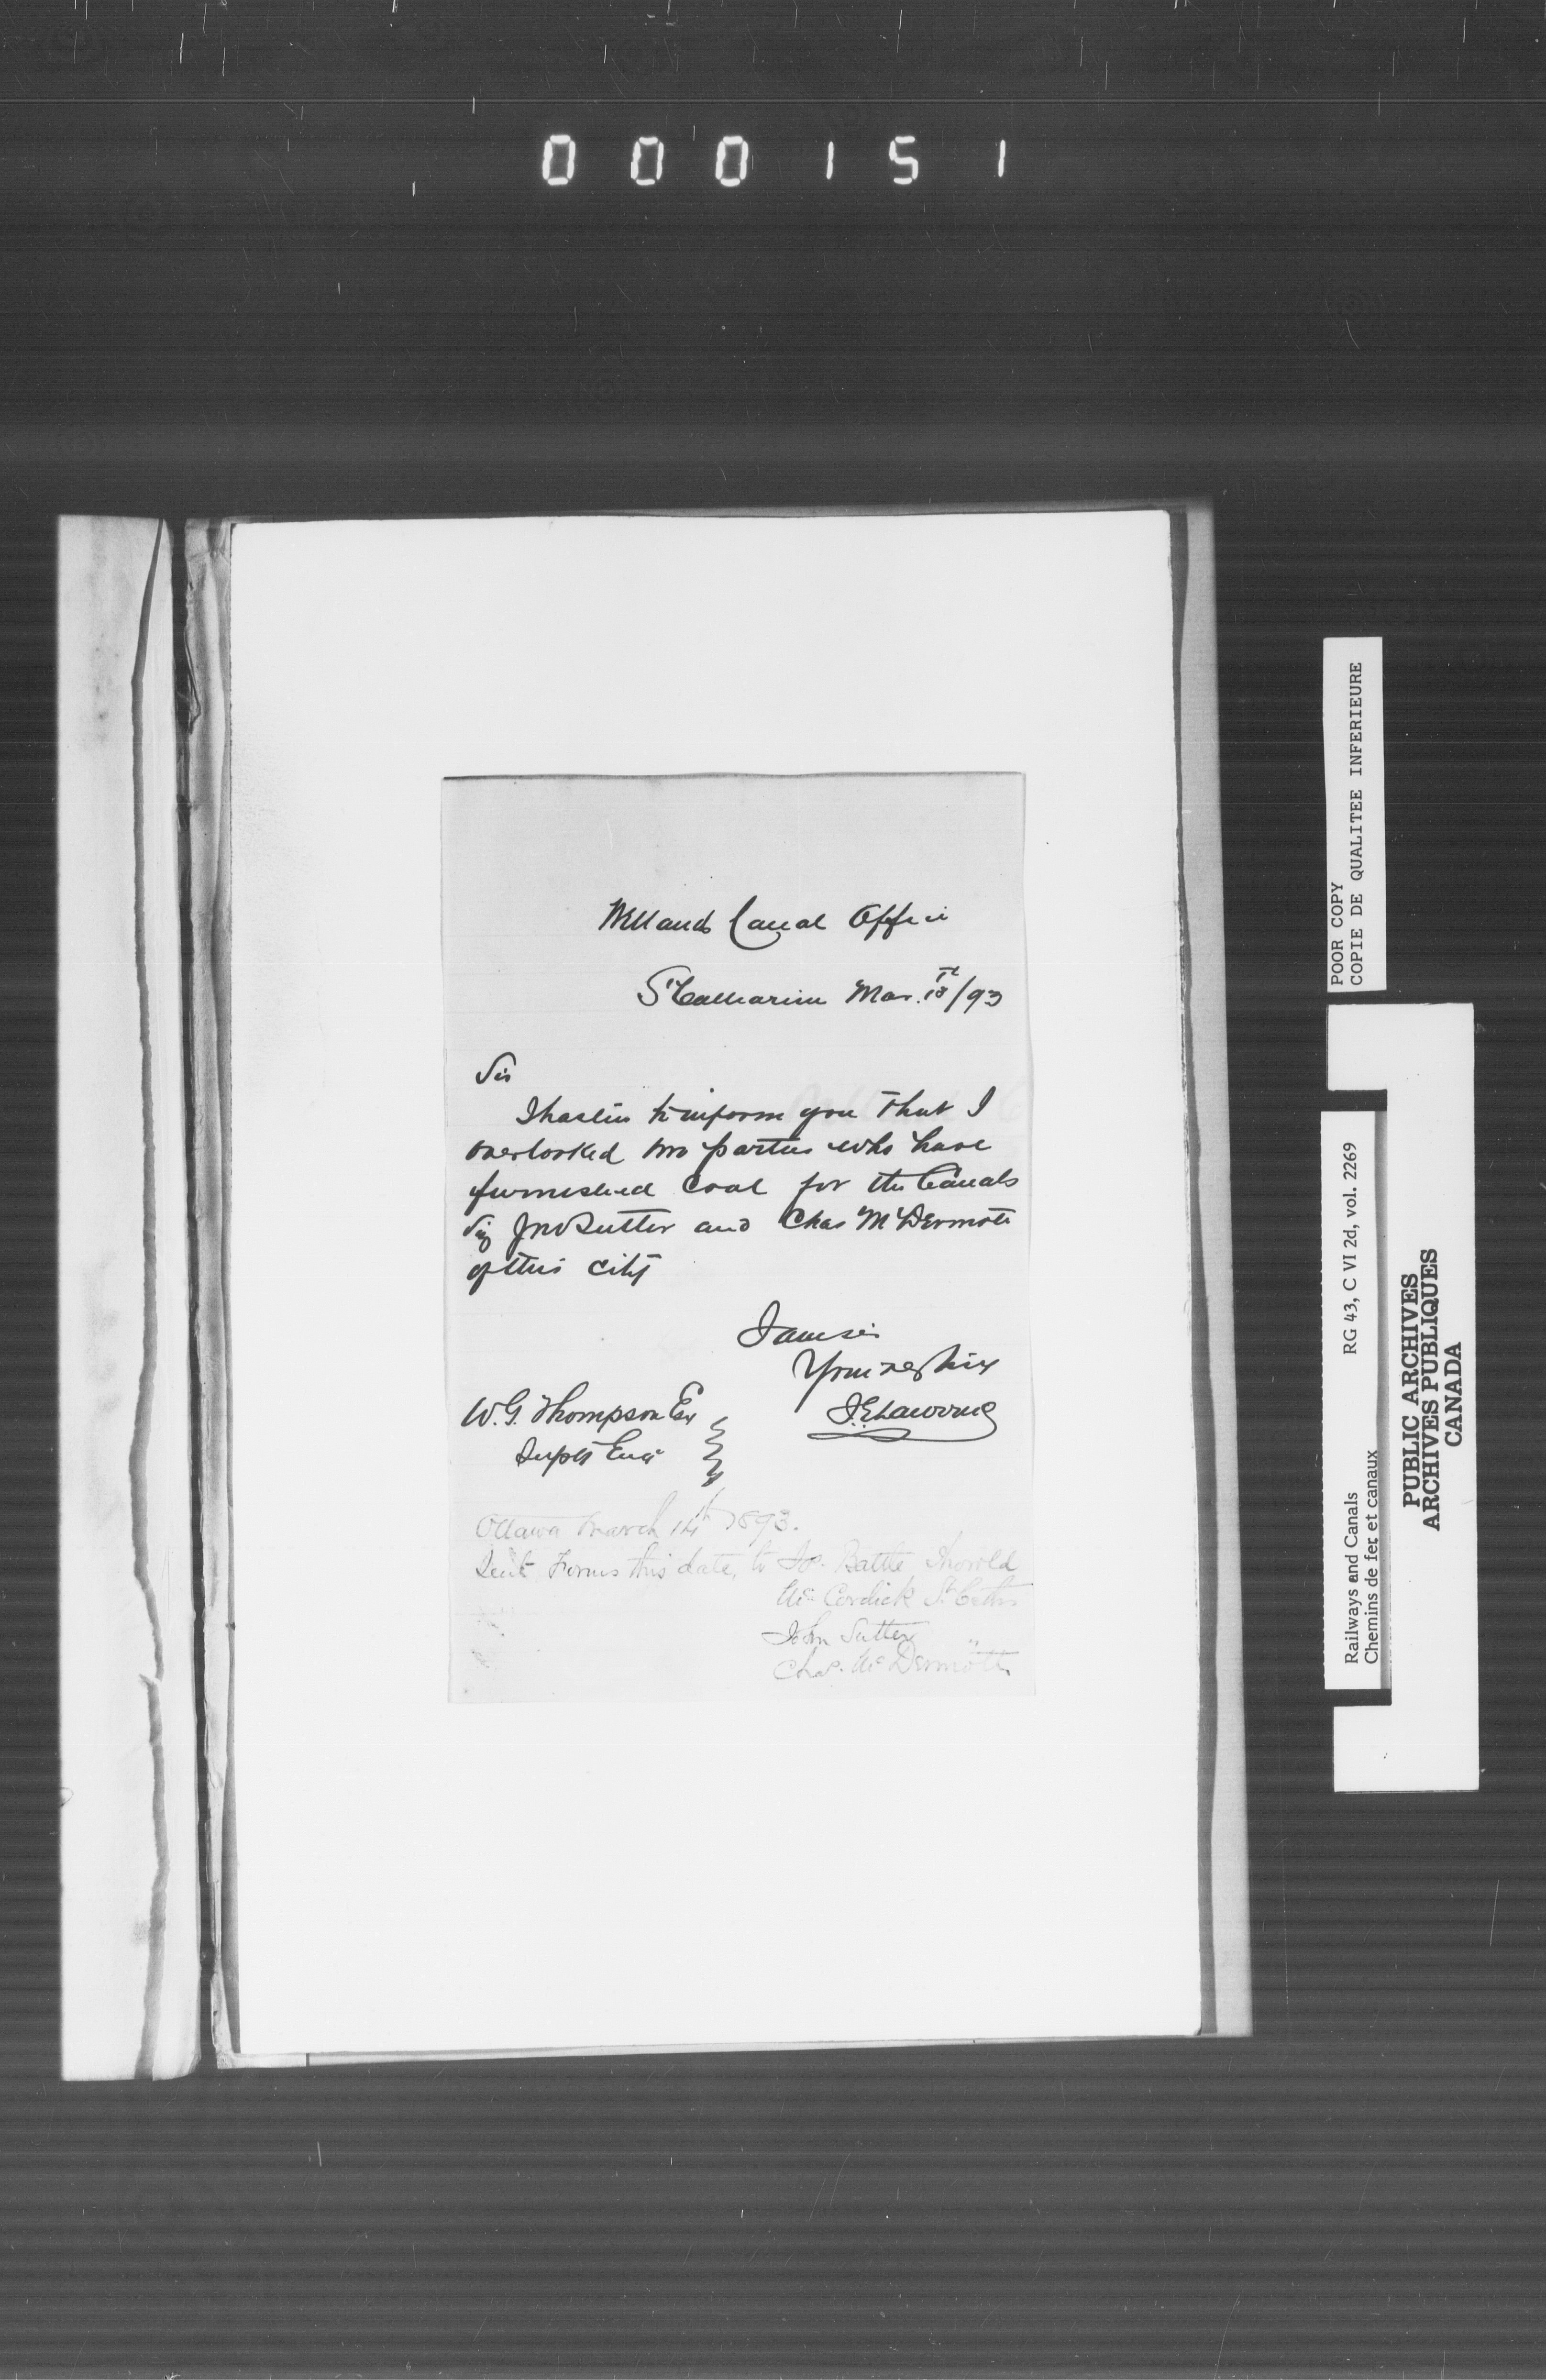 000151
Welland Canal Office
St Catharines Mar. 13th/93
Sir
I hasten to inform you that I
overlooked two parties who have
furnished Coal for the Canals
Viz Jno Sutter and Chas McDermott
of this City
I am sir
Your
W.G. Thompson Esq
Supt Engr
Ottawa March 14th 1893.
Sent Forms this date, to Jos. Battle Thorold
McCordick St Caths
John Sutter "
Chas. McDermott
POOR COPY
COPIE DE QUALITEE INFERIEURE
RG 43, C VI 2d, vol. 2269
Railways and Canals
Chemins de fer et canaux
PUBLIC ARCHIVES
ARCHIVES PUBLIQUES
CANADA